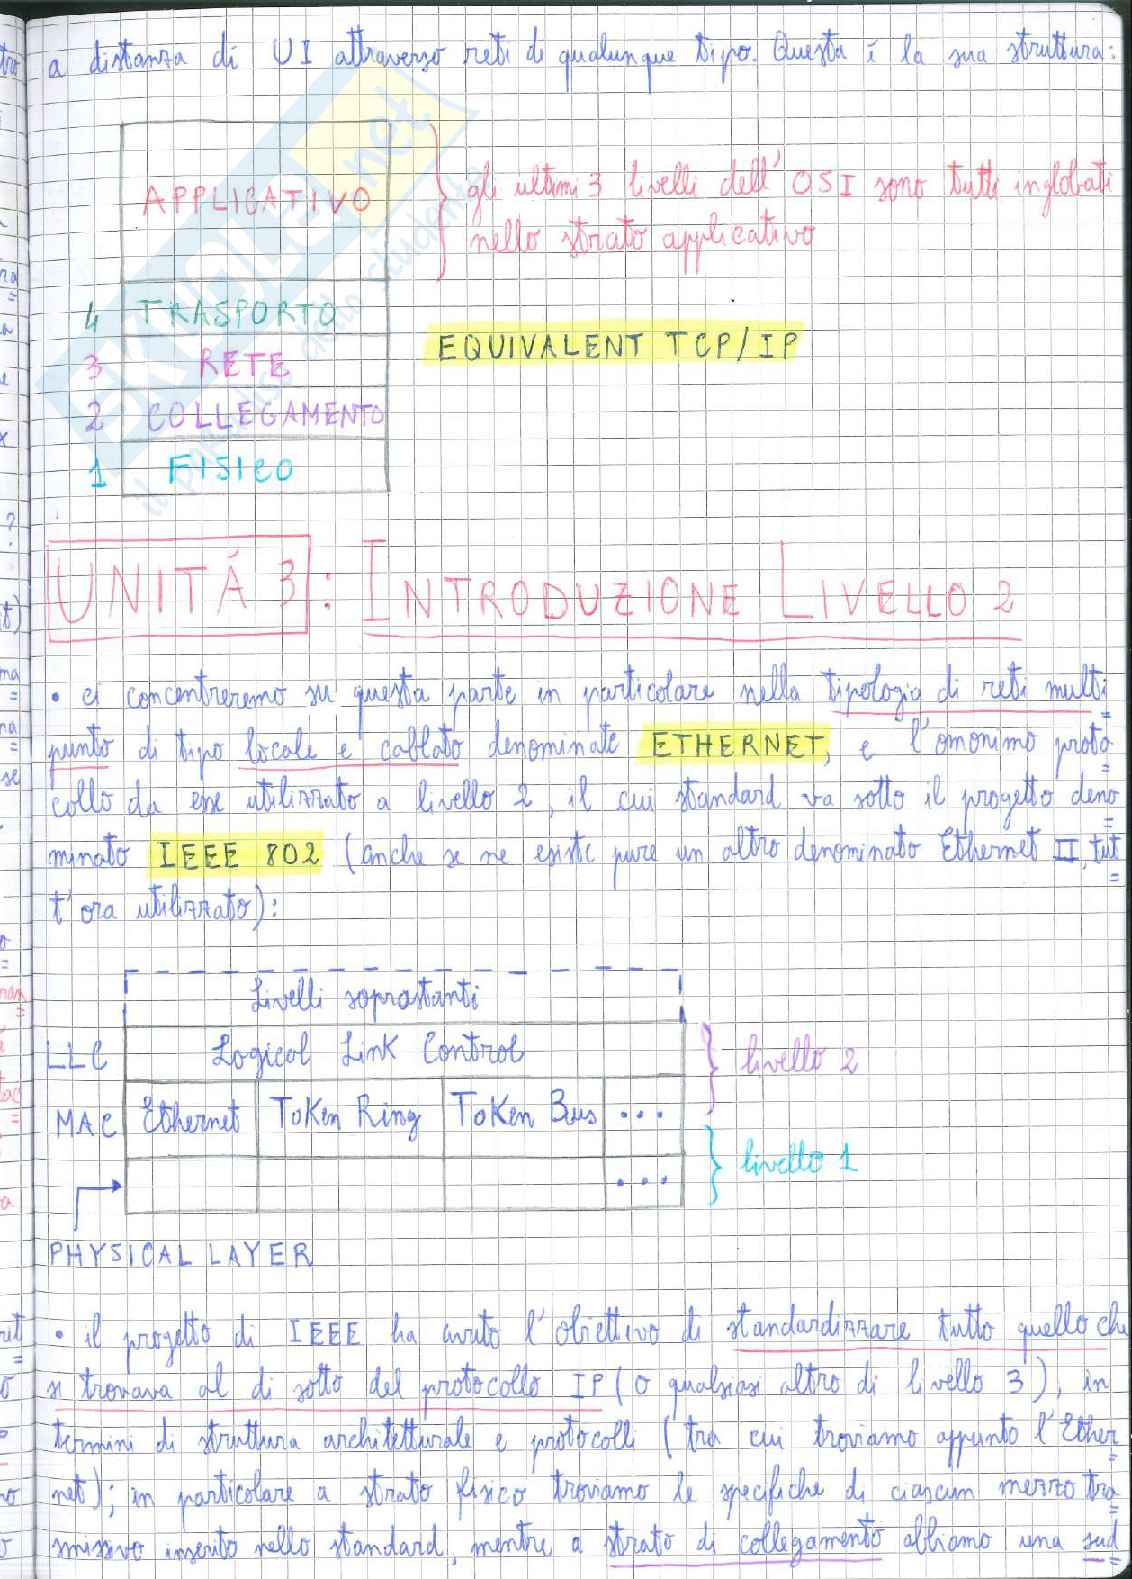 a distanza di UI attraverso reti di qualunque tipo. Questa è la sua struttura:
APPLICATIVO
gli ultimi 3 livelli dell'OSI sono tutti inglobati
nello strato applicativo
4 TRASPORTO
EQUIVALENT TCP/IP
3 RETE
2 COLLEGAMENTO
1 FISICO
UNITÀ 3: INTRODUZIONE LIVELLO 2
• ci concentreremo su questa parte in particolare nella tipologia di reti multi=
punto di tipo locale e cablato denominate ETHERNET, e l'omonimo proto=
collo da esse utilizzato a livello 2, il cui standard va sotto il progetto deno=
minato IEEE 802 (anche se ne esiste pure un altro denominato Ethernet II, tut=
t'ora utilizzato):
Livelli soprastanti
LLC Logical Link Control
livello 2
MAC Ethernet Token Ring Token Bus ...
livello 1
...
PHYSICAL LAYER
• il progetto di IEEE ha avuto l'obiettivo di standardizzare tutto quello che
si trovava al di sotto del protocollo IP (o qualsiasi altro di livello 3), in
termini di struttura architetturale e protocolli (tra cui troviamo appunto l'Ether=
net); in particolare a strato fisico troviamo le specifiche di ciascun mezzo tra=
smissivo inserito nello standard, mentre a strato di collegamento abbiamo una sud=